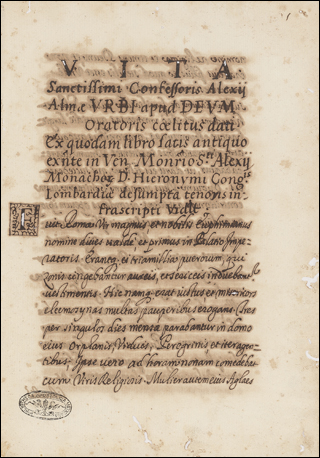 VITA
Sanctissimi Confessoris Alexij
Almæ VRBI apud DEVM
Oratoris cœlitus dati
Ex quodam libro satis antiquo
exñte in Ven. Monrio Sti Alexij
Monachor D. Hieronymi Congis
Lombardiæ desumpta tenoris in-
frascripti Videlt
Fuit Romæ Vir magnus et nobilis Euphemianus
nomine diues valde et primus in Palatio Impe-
ratoris. Erantq. ei tria millia puerorum, qui
zonis cingebantur aureis, et sericeis induebantr
vestimentis. Hic namq. erat iustus et misericors
eleemosynas multas pauperibus erogans. Tres
per singulos dies mensæ parabantur in domo
eius Orphanis, Viduis, Peregrinis, et iteragen-
tibus. Ipse vero ad horam nonam comedebat
cum Viris Religiosis. Mulier autem eius Aglaes